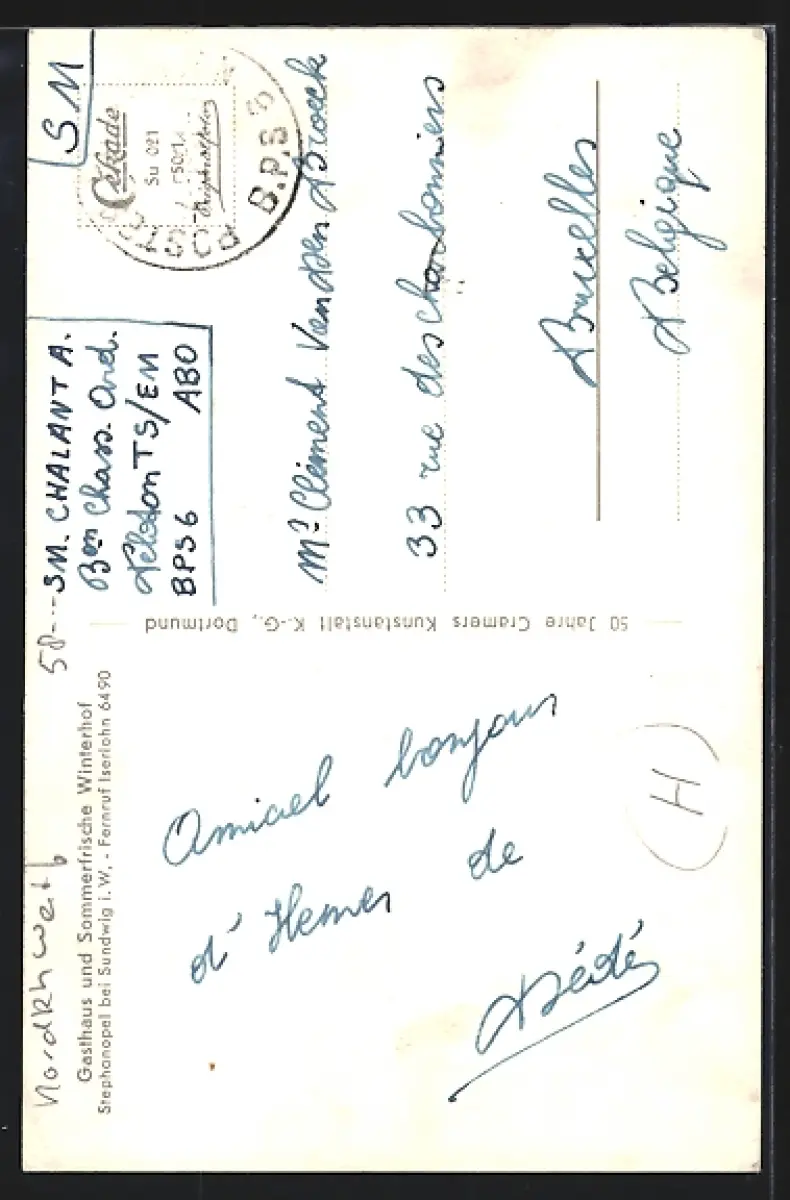 Nordrhwestf
58---
Gasthaus und Sommerfrische Winterhof
Stephanopel bei Sundwig i.W. - Fernruf Iserlohn 6490
Amical bonjour
d'Hemer de
Dédé
(H)
50 Jahre Cramers Kunstanstalt K.-G., Dortmund
SM. CHALANT A.
Bon Chass. Ard.
Peloton TS/EM
BPS6 ABO
SM
Cekade
Su 021
B.P.S
Mr Clément Van den Broeck
33 rue des Charbonniers
Bruxelles
Belgique